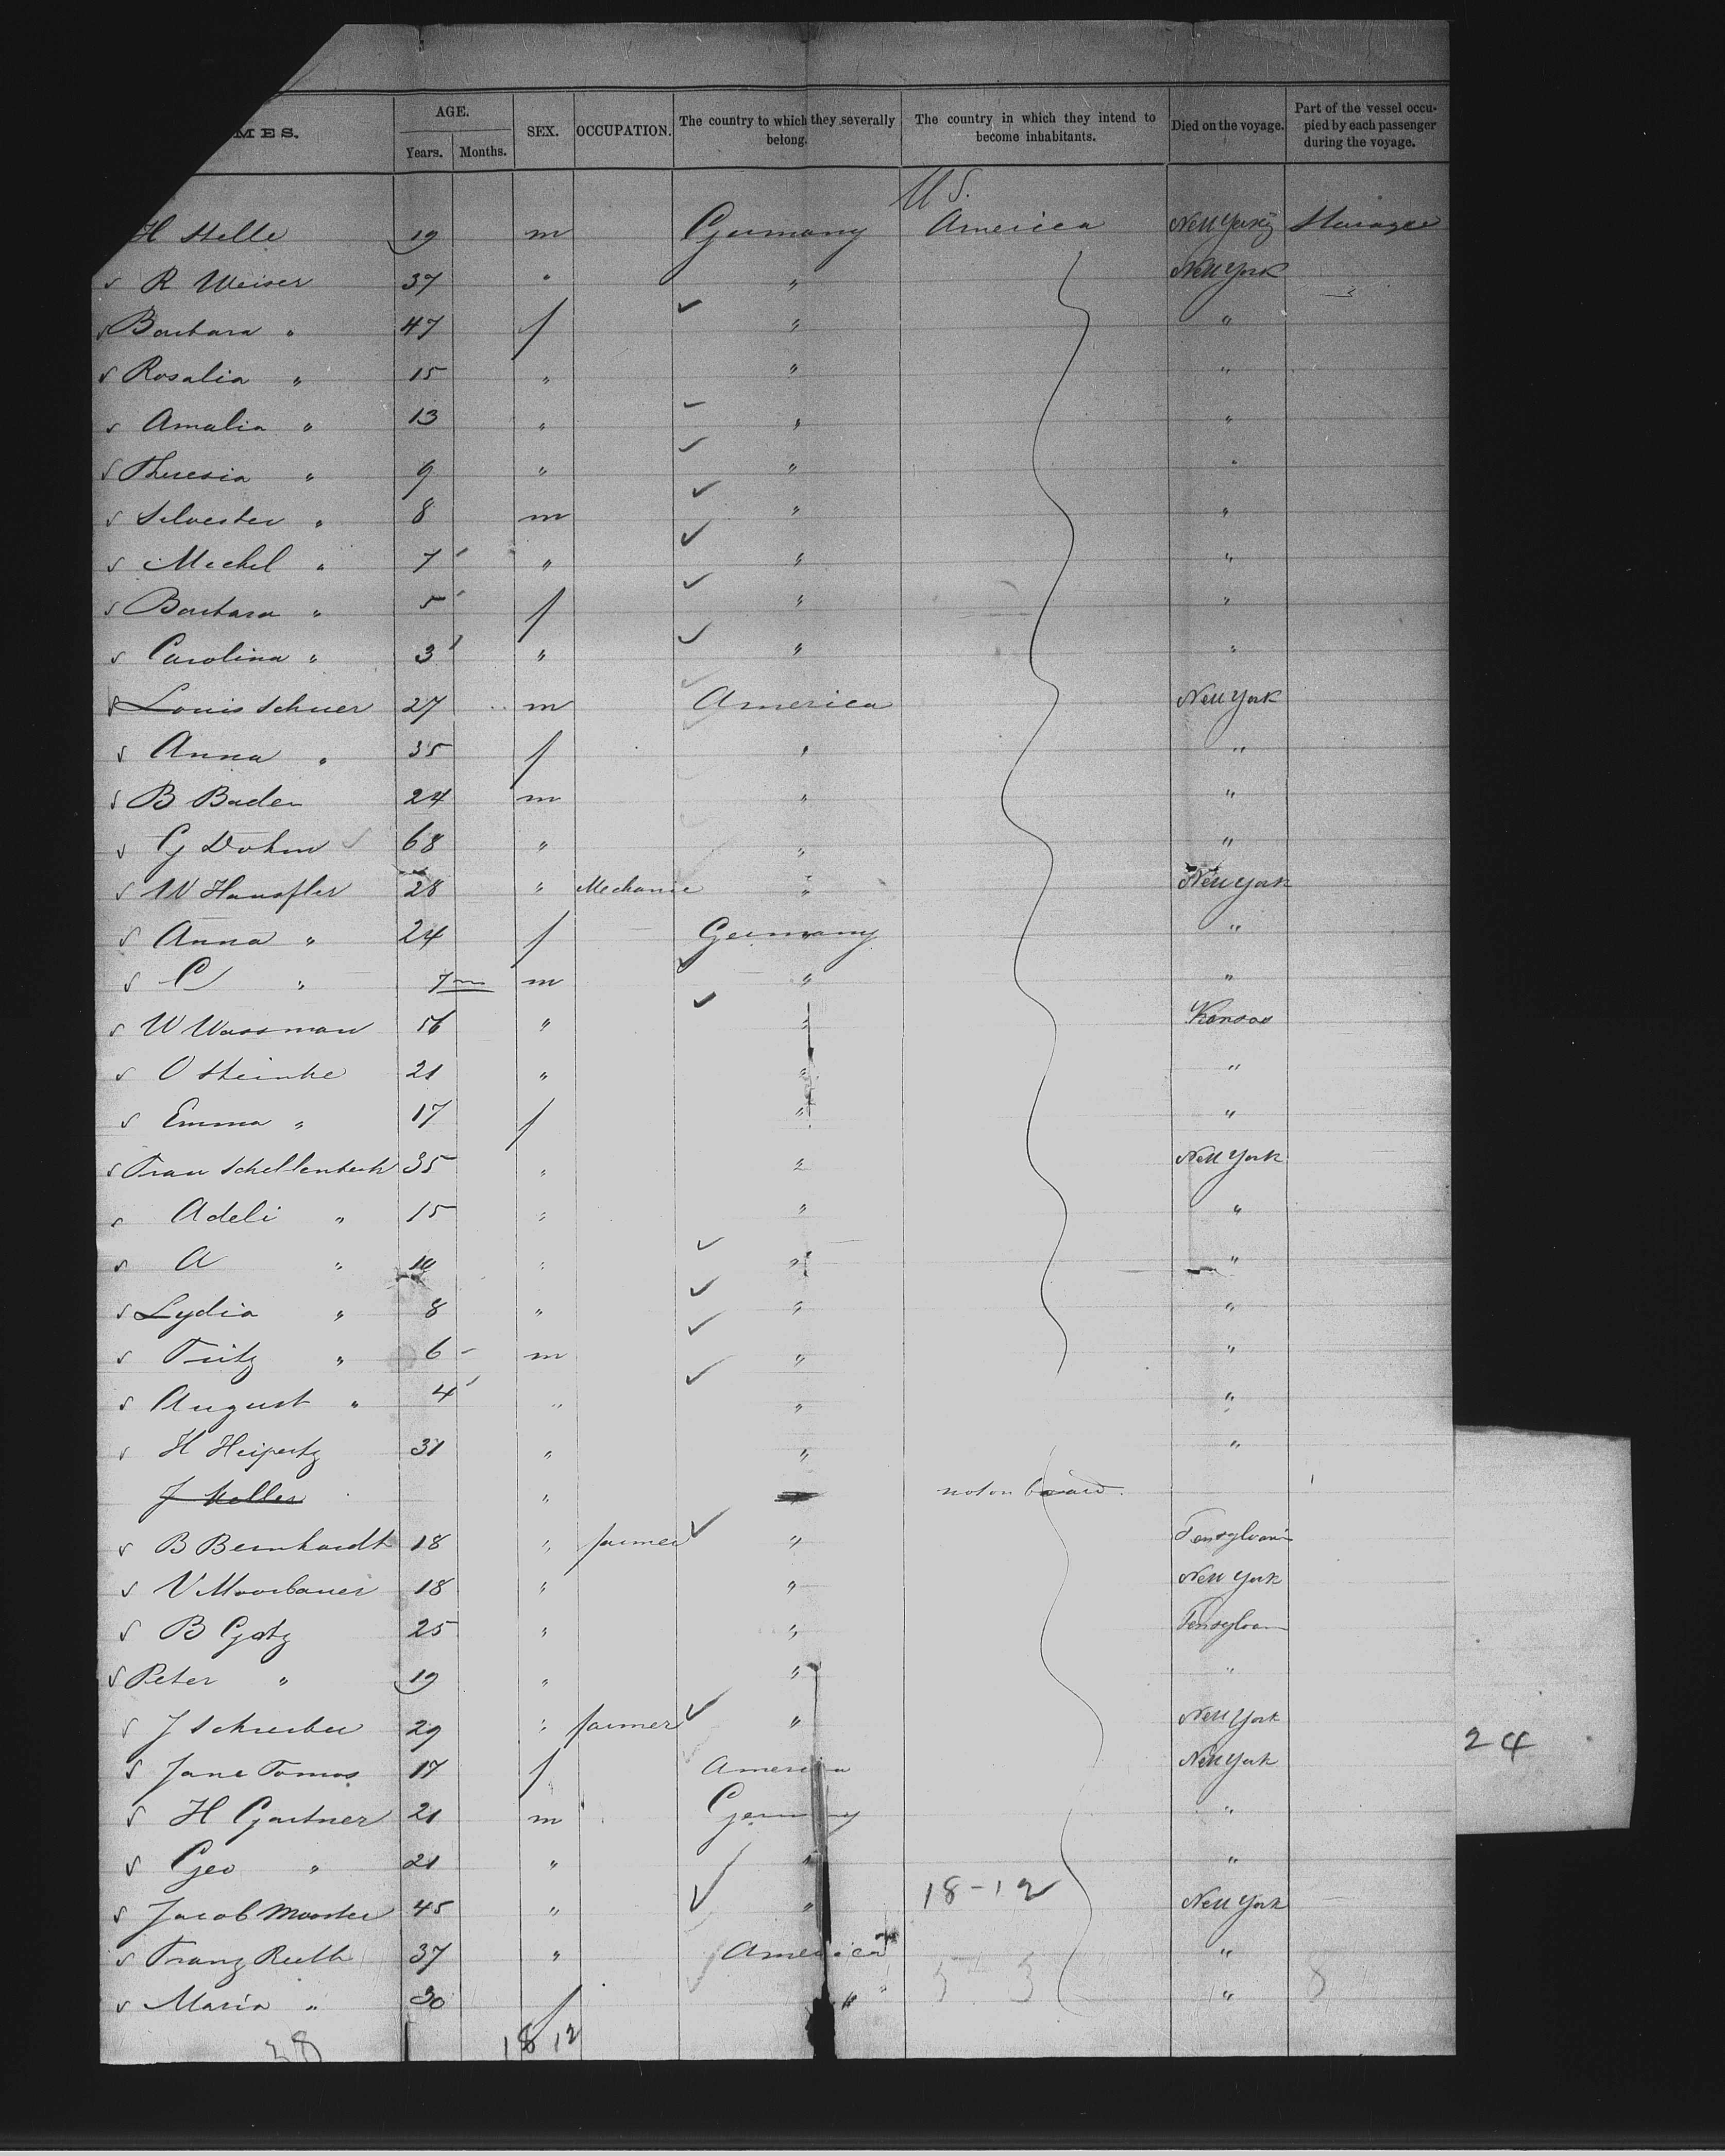 MES. AGE. Years. Months. SEX. OCCUPATION. The country to which they severally belong. The country in which they intend to become inhabitants. Died on the voyage. Part of the vessel occupied by each passenger during the voyage.
U S.
H Stelle 19 m Germany America New York
R Weiser 37 " " New York
Barbara " 47 f " "
Rosalia " 15 " " "
Amalia " 13 " " "
Theresia " 9 " " "
Silvester " 8 m " "
Mechel " 7 " " "
Barbara " 5 f " "
Carolina " 3 " " "
Louis Schuer 27 m America New York
Anna " 35 f " "
B Baden 24 m " "
G Dohm 68 " " "
W Haussler 28 " Mechanic " New York
Anna " 24 f Germany "
C " 7 m m " "
W Wassman 56 " " Kansas
O Steinke 21 " " "
Emma " 17 f " "
Frau Schellenbech 35 " " New York
Adeli " 15 " " "
A " 10 " " "
Lydia " 8 " " "
Fritz " 6 m " "
August " 4 " " "
H Heipertz 31 " " "
J Moller " not on board.
B Bernhardt 18 " farmer " Pensylvani
V Moosbauer 18 " " New York
B Gotz 25 " " Pensylvan
Peter " 19 " " "
J Schreiber 29 " farmer " New York
Jane Tomas 17 f America New York
H Gartner 21 m Germany "
Geo " 21 " " "
18-12
Jacob 45 " " New York
Franz Ruth 37 " America "
Maria " 30 f " "
5 3 8
38 18 12
24